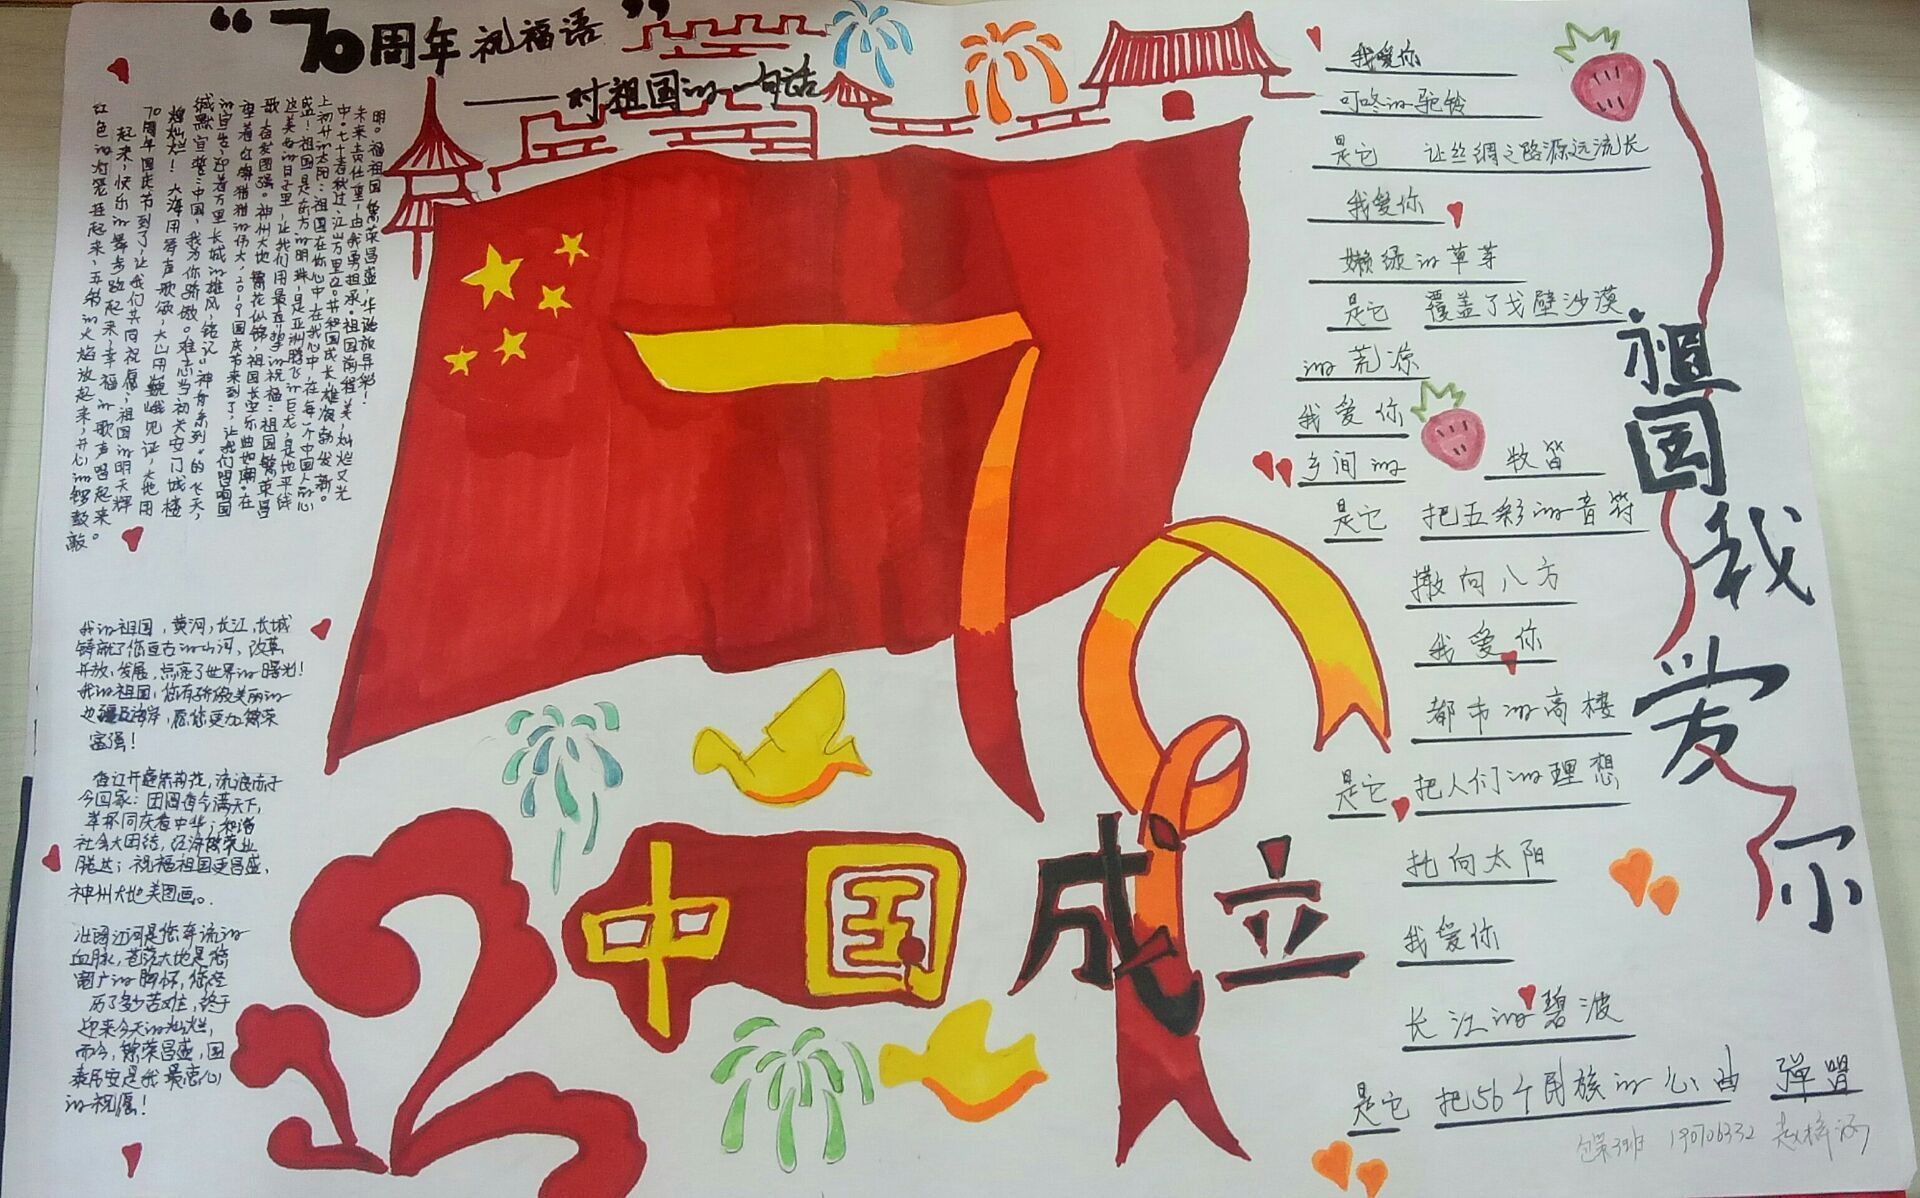 “70周年祝福语”
——对祖国的一句话
明。福祖国繁荣昌盛,华诞放异彩!
未来责任重,由我勇担承。祖国前程美,灿烂又光
中。七十春秋过,江山万里红。共和国成长,雄姿勃发新。
上初升的太阳:祖国在你心中,在我心中,在每一个中国人的心
盛!祖国是东方的明珠,是亚洲腾飞的巨龙,是地平线
这美好的日子里,让我们用最真挚的祝福:祖国繁荣昌
歌,奋发图强。神州大地繁花似锦,祖国长空乐曲如潮。在
着红旗猎猎的伟大,2019国庆节来到了,让我们唱响国
的宣告,迎着万里长城的雄风,铭记“神舟系列”的飞天,
缄默宣誓:中国,我为你骄傲。难忘当初天安门城楼
辉灿烂!大海用涛声歌颂,大山用巍峨见证,大地用
70周年国庆节到了,让我们共同祝愿,祖国的明天辉
起来,快乐的舞步跳起来,幸福的歌声唱起来。
红色的灯笼挂起来,五彩的火焰放起来,开心的锣鼓敲
我的祖国,黄河,长江,长城
铸就了您亘古的山河,改革
开放,发展,点亮了世界的曙光!
我的祖国,您有骄傲美丽的
边疆及海岸,愿您更加繁荣
富强!
香江开遍紫荆花,流浪赤子
今回家;团圆宿今满天下,
举杯同庆看中华;和谐
社会大团结,经济繁荣业
腾达;祝福祖国更昌盛,
神州大地美图画。
壮阔江河是您奔流的
血脉,苍茫大地是您
宽广的胸怀,您经
历了多少苦难,终于
迎来今天的灿烂,
而今,繁荣昌盛,国
泰民安是我最衷心
的祝愿!
70
中国成立
我爱你
叮咚的驼铃
是它 让丝绸之路源远流长
我爱你
嫩绿的草芽
是它 覆盖了戈壁沙漠
的荒凉
我爱你
乡间的 牧笛
是它 把五彩的音符
撒向八方
我爱你
都市的高楼
是它 把人们的理想
托向太阳
我爱你
长江的碧波
是它 把56个民族的心曲 弹唱
祖国我爱你
190706332 赵梓涵